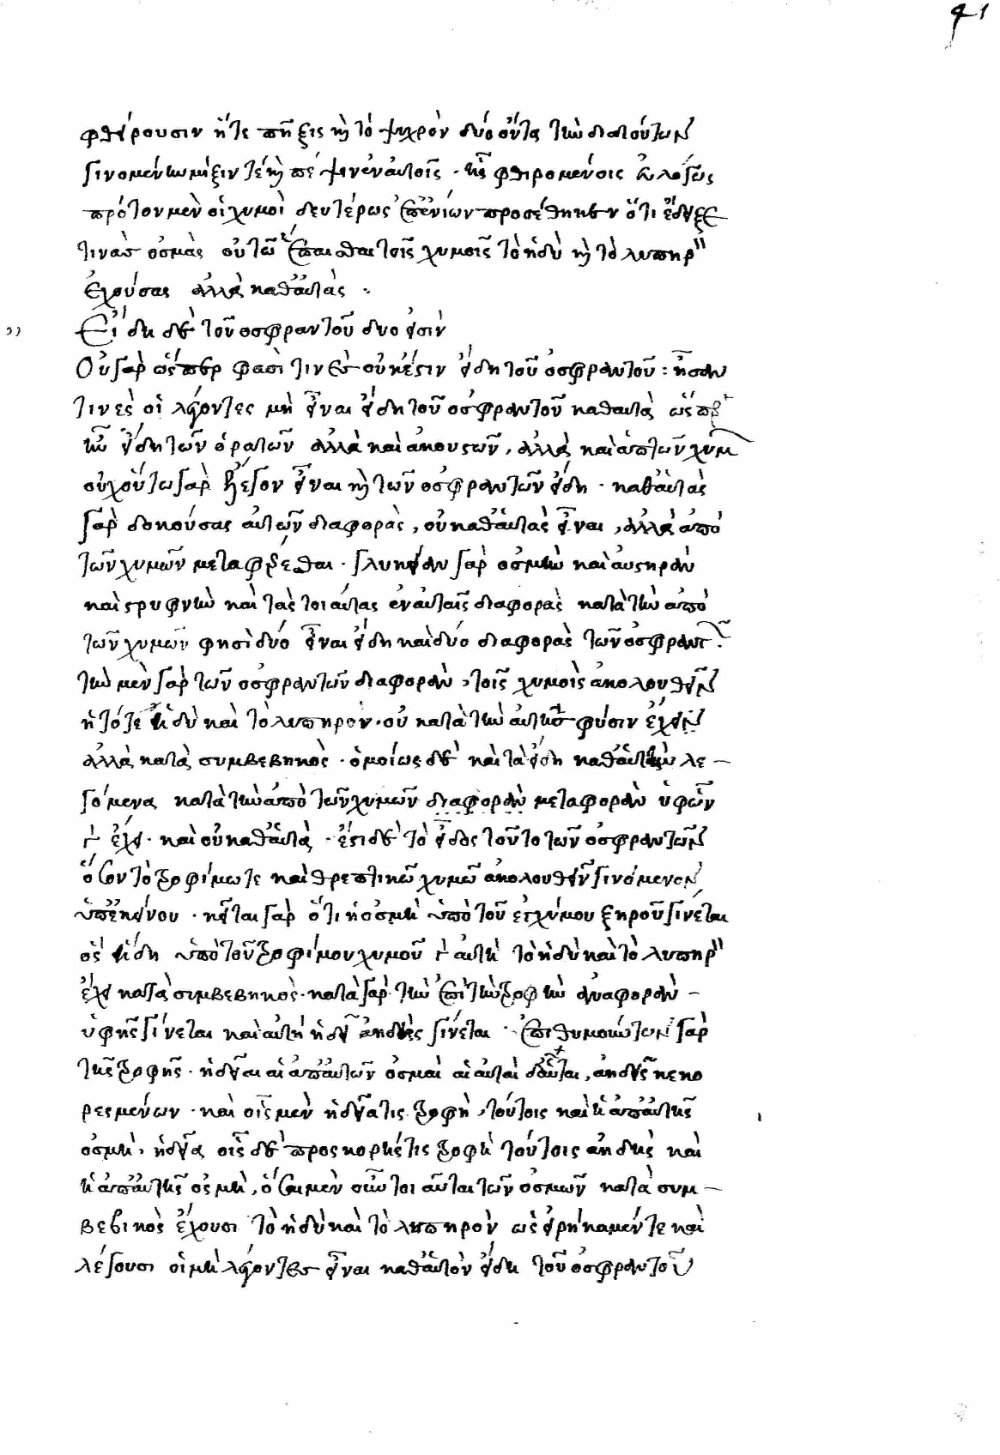 41
φθείρουσιν ἥτε πῆξις καὶ τὸ ψυχρὸν δύο ὄντα τὴν διὰ τούτων
γινομένην μίξιν τέ καὶ πέψιν ἐν αὐτοῖς · τῆς φθειρομένοις
πρότον μὲν οἱ χυμοὶ δευτέρως ἐπ' ἐνίων προσέθηκεν ὅτι ἔδειξε
τινὰσ ὀσμὰς οὐ τῶ ἕπεσθαι τοῖς χυμοῖς τὸ ἡδὺ καὶ τὸ λυπηρὸν
ἐχούσας ἀλλὰ καθ' αὑτὰς ·
Εἴδη δὲ τοῦ οσφραντοῦ δυο εἰσίν
Οὐ γὰρ ὥσπερ φασὶ τινὲσ οὐκ ἔστιν εἴδη τοῦ ὀσφραντοῦ : ἦσαν
τινὲς οἱ λέγοντες μὴ εἶναι εἴδη τοῦ οσφραντοῦ καθ' αὑτὰ ὥσπερ
τῶν εἴδη τῶν ὁρατῶν ἀλλὰ καὶ ἀκουστῶν, ἀλλὰ καὶ ἁπτῶν χυμῶν
οὐχ οὕτω γὰρ ἔλεγον εἶναι καὶ τῶν οσφραντῶν εἴδη · καθ' αὑτὰς
γὰρ δοκούσας αὐτῶν διαφορὰς, οὐ καθ' αὑτὰς εἶναι, ἀλλὰ ἀπὸ
τῶν χυμῶν μεταφέρεσθαι · γλυκεῖαν γὰρ οσμὴν καὶ αὐστηρὰν
καὶ στρυφνὴν καὶ τὰς τοιαύτας ἐν αὐταῖς διαφορὰς κατὰ τὴν ἀπὸ
τῶν χυμῶν φησὶ δύο εἶναι εἴδη καὶ δύο διαφορὰς τῶν ὀσφραντῶν ·
τὴν μὲν γὰρ τῶν οσφραντῶν διαφορὰν, τοῖς χυμοῖς ἀκολουθεῖν
ἡ τό τε ἡδὺ καὶ τὸ λυπηρὸν · οὐ κατὰ τὴν αὐτῆς φύσιν ἔχειν
ἀλλὰ κατὰ συμβεβηκὸς · ὁμοίως δὲ καὶ τὰ εἴδη καθ' αὑτὴν λε –
γόμενα κατὰ τὴν ἀπὸ τῶν χυμῶν διαφορὰν μεταφορὰν ὑφ' ὧν
ἔχει · καὶ οὐ καθ' αὑτὰ · ἔστι δὲ τὸ εἶδος τοῦτο τῶν ὀσφραντῶν
ὅσον τὸ τροφίμω τε καὶ θρεπτικῶ χυμῶ ἀκολουθεῖν γινόμενον
ὑπ' ἐκείνου · κεῖται γὰρ ὅτι ἡ ὀσμὴ ὑπὸ τοῦ εγχύμου ξηροῦ γίνεται
ὃς ἤδη ὑπὸ τοῦ τροφίμου χυμοῦ αὐτὴ τὸ ἡδὺ καὶ τὸ λυπηρὸν
ἔχει κατὰ συμβεβηκὸς · κατὰ γὰρ τὴν ἐπὶ τὴν τροφὴν ἀναφορὰν –
ὑφ' ἧς γίνεται καὶ αὐτὴ ἡδεῖ ἀηδὴς γίνεται · ἐπιθυμούντων γὰρ
τῆς τροφῆς · ἡδεῖαι αἱ ἀπ' αὐτῶν ὀσμαὶ αἱ αὐταὶ, ἀηδεῖς κεκο
ρεσμένων · καὶ οἷς μὲν ἡδεῖα τις τροφὴ, τούτοις καὶ ἡ ἀπ' αὐτῆς
οσμὴ, ἡδεῖα οἷς δὲ προσκορὴς τις τροφὴ τούτοις ἀηδὴς καὶ
ἡ ἀπ' αὐτῆς οσμὴ, ὅσαι μὲν οὖν τοι αὗται τῶν ὀσμῶν κατὰ συμ –
βεβικὸς ἔχουσι τὸ ἡδὺ καὶ τὸ λυπηρὸν ὡς εἰρήκαμέν τε καὶ
λέγουσι οἱ μὴ λέγοντεσ εἶναι καθ' αὑτὸν εἴδη τοῦ οσφραντοῦ